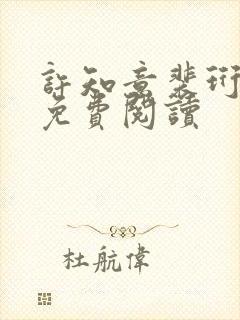 許知意裴珩
免費閱讀
杜航偉